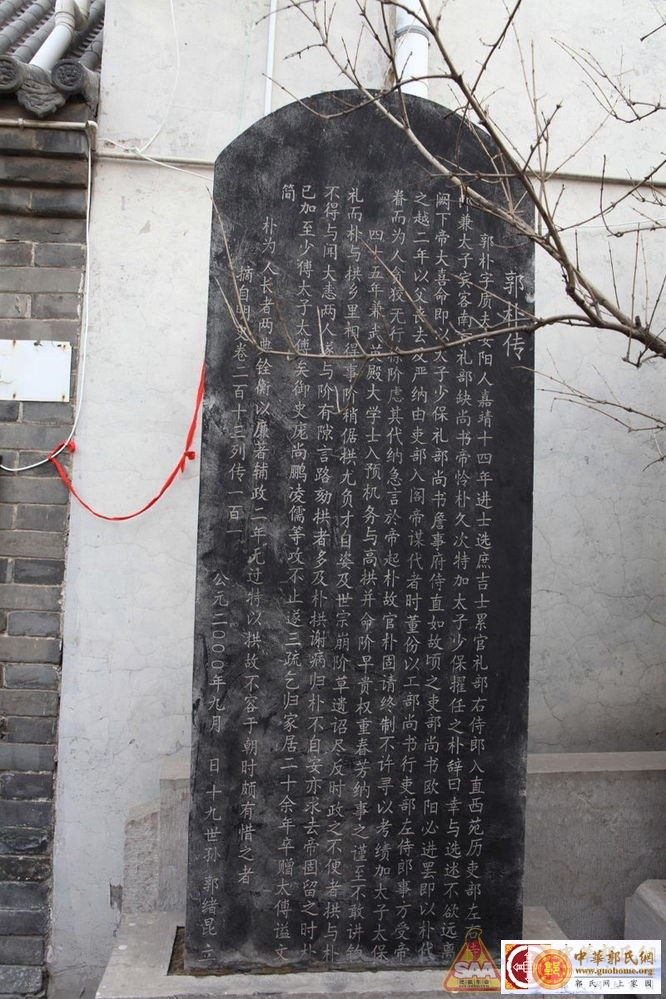 郭朴传
郭朴字质夫安阳人嘉靖十四年进士选庶吉士累官礼部右侍郎入直西苑历吏部左右
兼太子宾客南京礼部缺尚书帝怜朴久次特加太子少保擢任之朴辞曰幸与选述不欲远离
阙下帝大喜命即以太子少保礼部尚书詹事府侍直如故顷之吏部尚书欧阳必进罢即以朴代
之越二年以父丧去及严纳由吏部入阁帝谋代者时董份以工部尚书行吏部左侍郎事方受帝
眷而为人贪狡无行徐阶虑其代纳急言於帝起朴故官朴固请终制不许寻以考绩加太子太保
四十五年兼武英殿大学士入预机务与高拱并命阶早贵权重春芳纳事之谨至不敢讲钧
礼而朴与拱乡里相得事阶稍倨拱尤负才自姿及世宗崩阶草遗诏尽反时政之不便者拱与朴
不得与闻大恚两人遂与阶有隙言路劾拱者多及朴拱谢病归朴不自安亦求去帝固留之时朴
已加至少傅太子太傅矣御史庞尚鹏凌儒等攻不止遂三疏乞归家居二十余年卒赠太傅谥文
简
朴为人长者两典铨衡以廉著辅政二年无过特以拱故不容于朝时颇有惜之者
摘自明史卷二百十三列传一百一
公元二〇〇〇年九月 日十九世孙 郭绪昆 立
SAA
中華郭氏網
www.guohome.org
郭氏网上家园